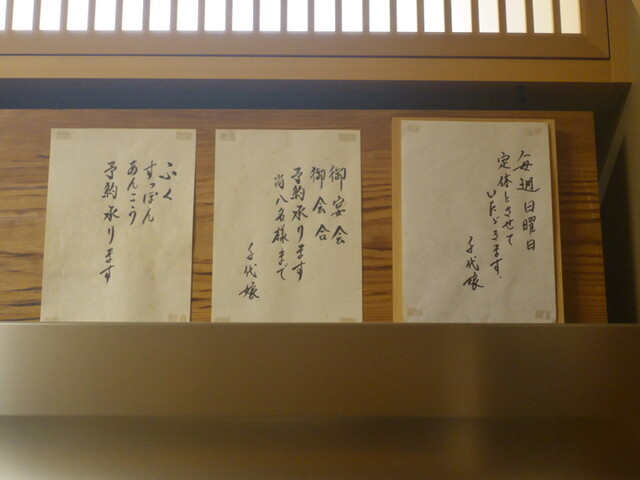 毎週日曜日
定休とさせて
いただきます。
千代娘
御宴会
御会合
予約承ります
尚八名様まで
千代娘
ふく
すっぽん
あんこう
予約承ります